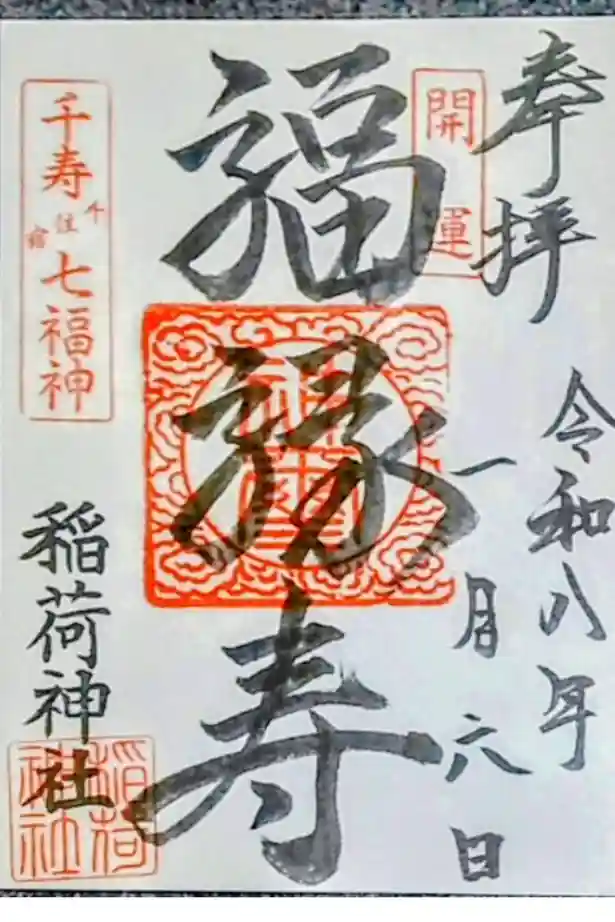 奉拝
令和八年
一月六日
開運
福禄寿
千寿七福神
千住宿
稲荷神社
稲荷
神社